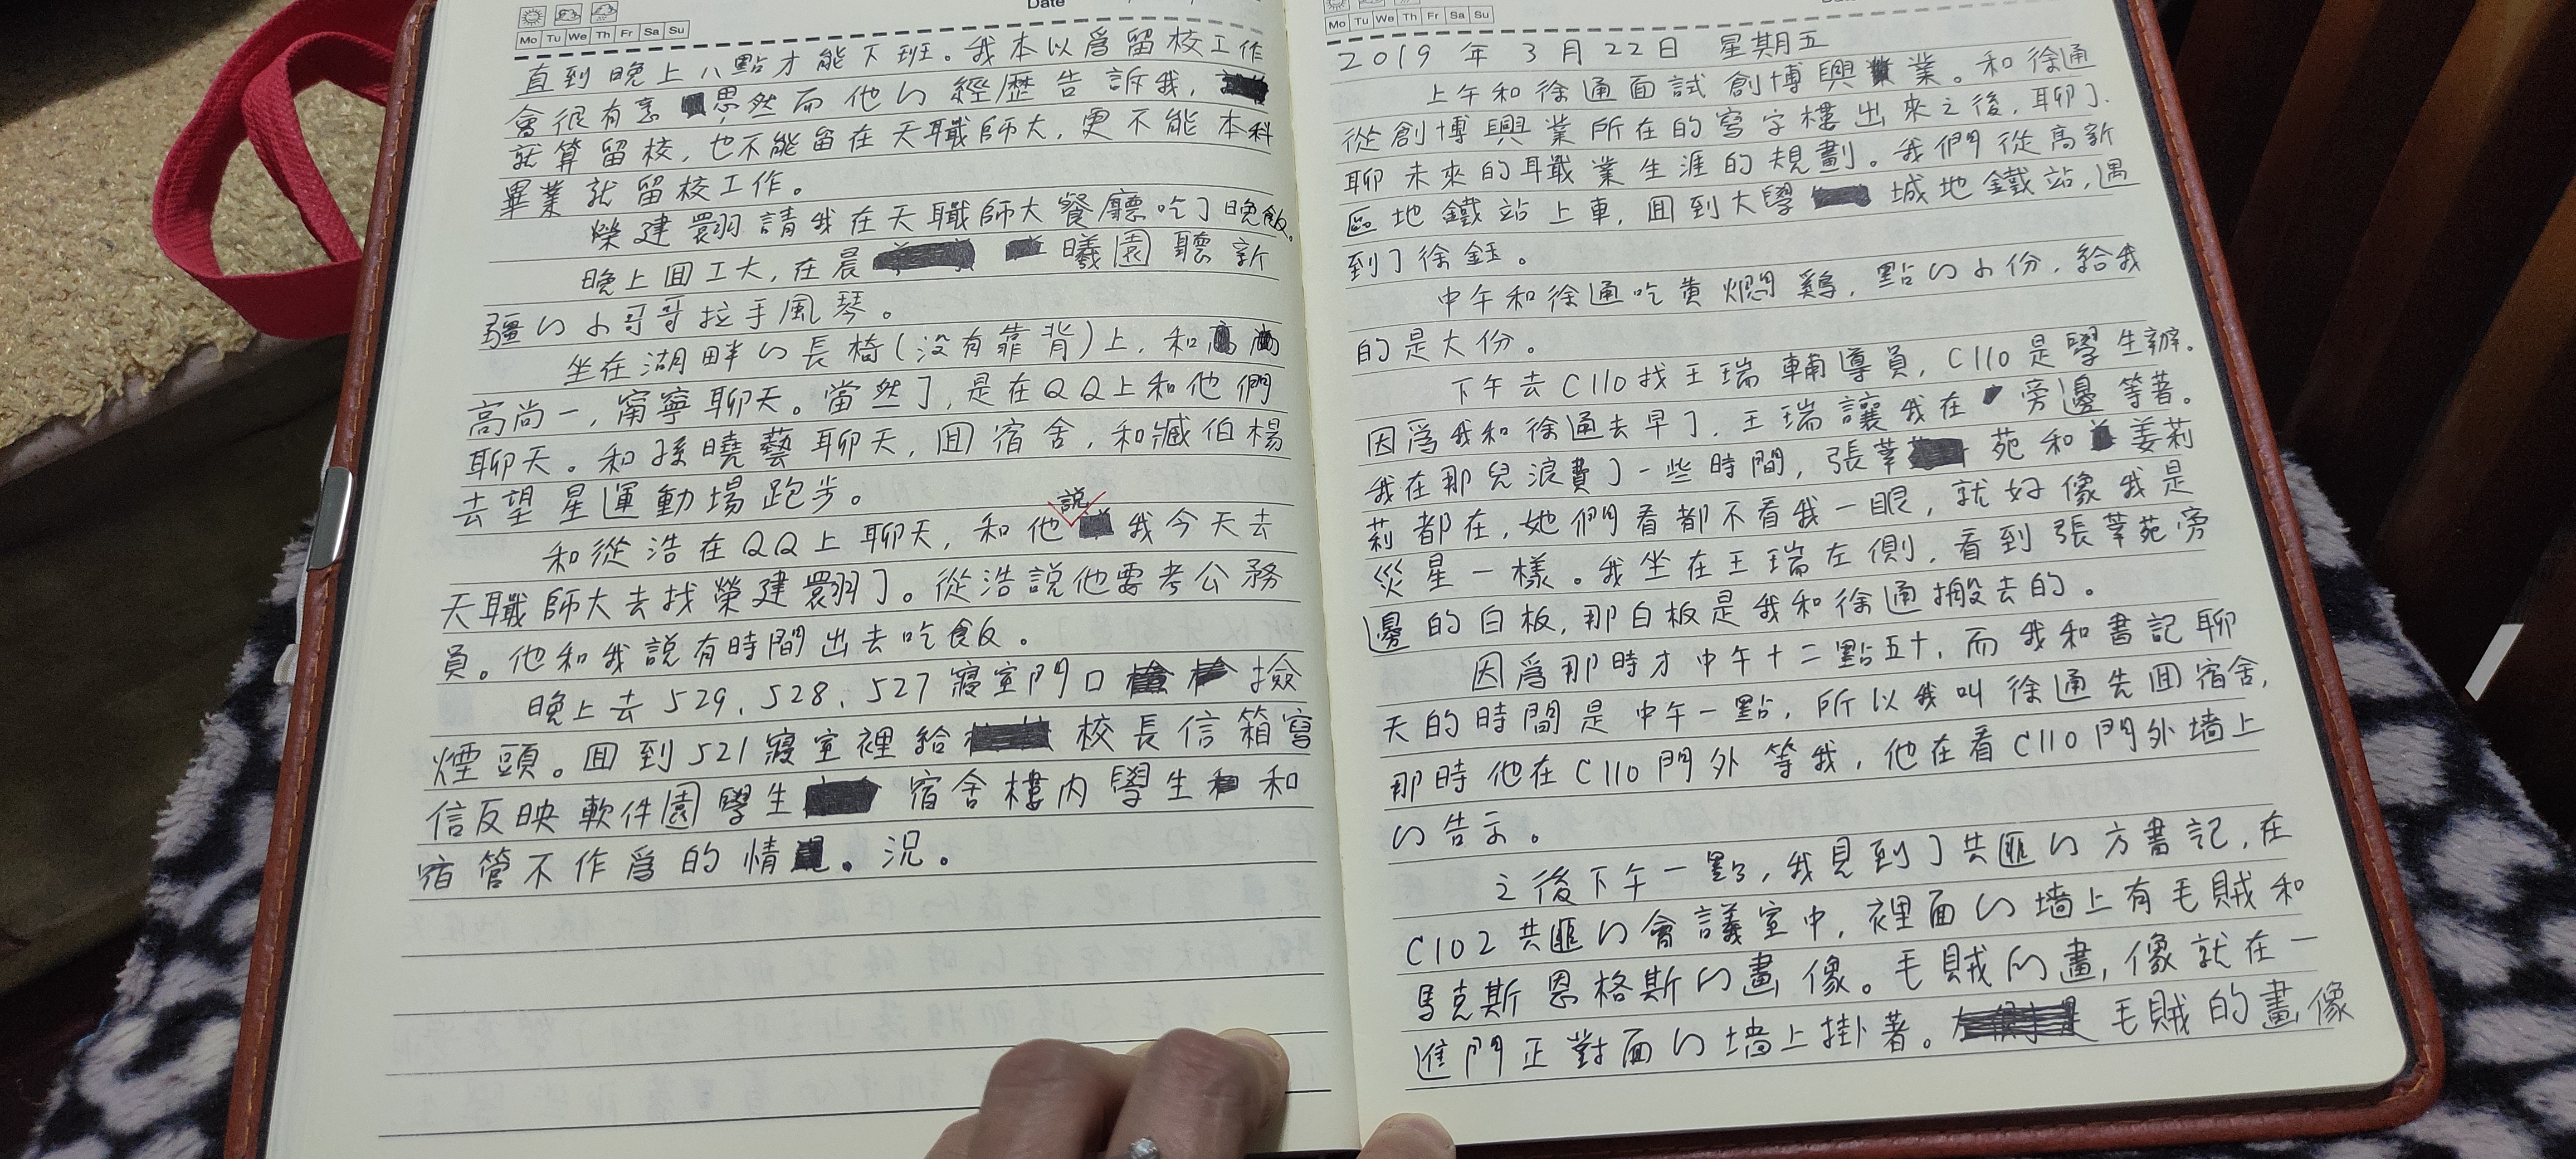 Date
Mo Tu We Th Fr Sa Su
直到晚上八點才能下班。我本以爲留校工作
會很有意思,然而他的經歷告訴我,
就算留校,也不能留在天職師大,更不能本科
畢業就留校工作。
榮建翾請我在天職師大餐廳吃了晚飯。
晚上回工大,在晨曦園聽新
疆的小哥哥拉手風琴。
坐在湖畔的長椅(没有靠背)上,和
高尚一,甯寧聊天。當然了,是在QQ上和他們
聊天。和孫曉藝聊天,回宿舍,和臧伯楊
去望星運動場跑步。
和從浩在QQ上聊天,和他說我今天去
天職師大去找榮建翾了。從浩説他要考公務
員。他和我説有時間出去吃飯。
晚上去529、528、527寢室門口撿
煙頭。回到521寢室裡給校長信箱寫
信反映軟件園學生宿舍樓内學生和
宿管不作爲的情。況。
Mo Tu We Th Fr Sa Su
2019年3月22日 星期五
上午和徐通面試創博興業。和徐通
從創博興業所在的寫字樓出來之後,聊了
聊未來的職業生涯的規劃。我們從高新
區地鐵站上車,回到大學城地鐵站,遇
到了徐鈺。
中午和徐通吃黄燜鷄,點的小份,給我
的是大份。
下午去C110找王瑞輔導員,C110是學生辦。
因爲我和徐通去早了,王瑞讓我在旁邊等著。
我在那兒浪費了一些時間,張莘苑和姜莉
莉都在,她們看都不看我一眼,就好像我是
災星一樣。我坐在王瑞左側,看到張莘苑旁
邊的白板,那白板是我和徐通搬去的。
因爲那時才中午十二點五十,而我和書記聊
天的時間是中午一點,所以我叫徐通先回宿舍,
那時他在C110門外等我,他在看C110門外墙上
的告示。
之後下午一點,我見到了共匪的方書記,在
C102共匪的會議室中,裡面的墙上有毛賊和
馬克斯恩格斯的畫像。毛賊的畫,像就在一
進門正對面的墙上掛著。毛賊的畫像